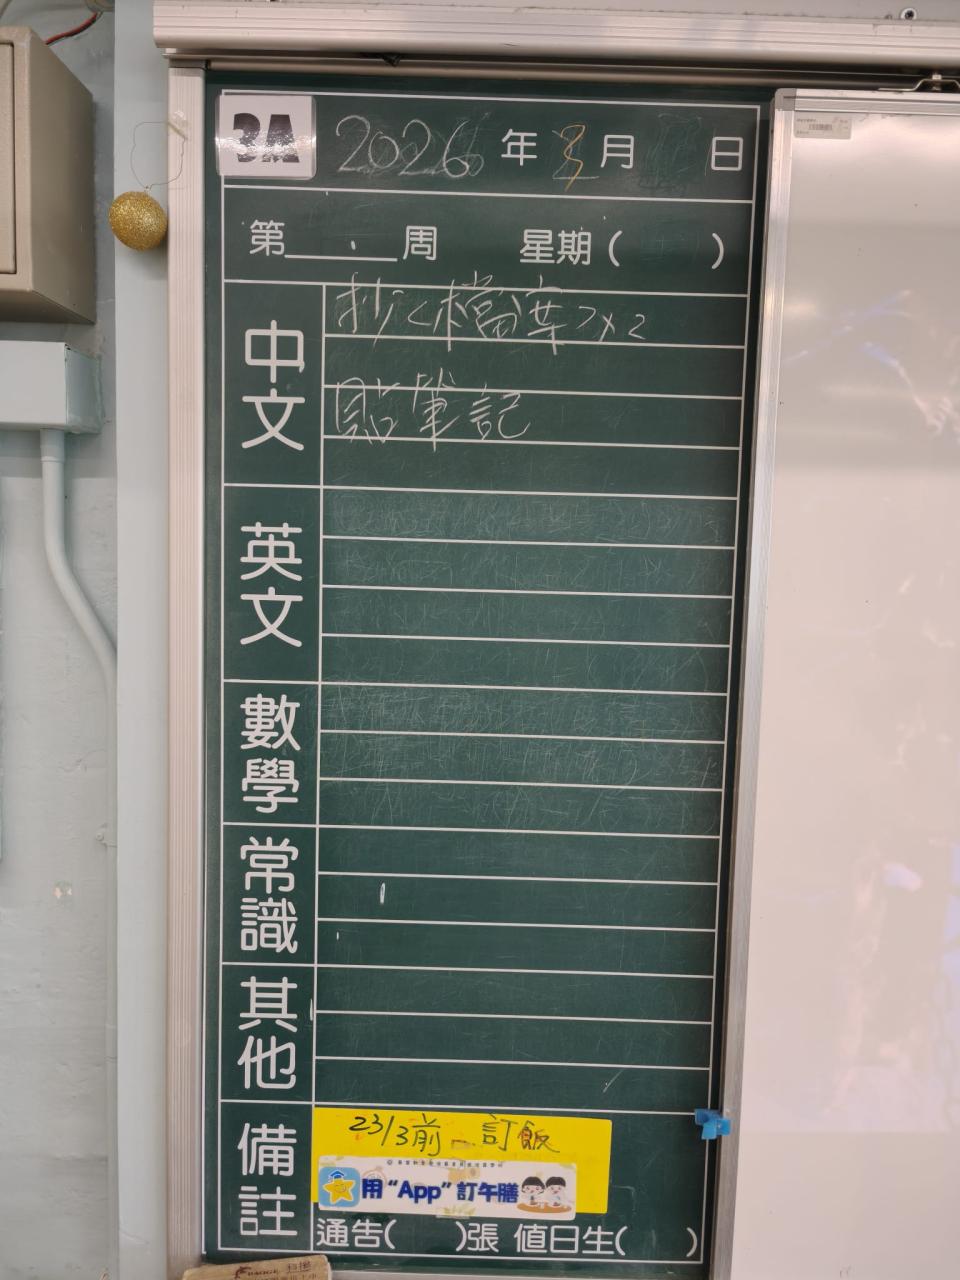 3A 2026 年 3 月 日
第 周 星期( )
中文
抄<檔案>x2
貼筆記
英文
數學
常識
其他
備註
23/3前 訂飯
用“App”訂午膳
通告( )張 值日生( )